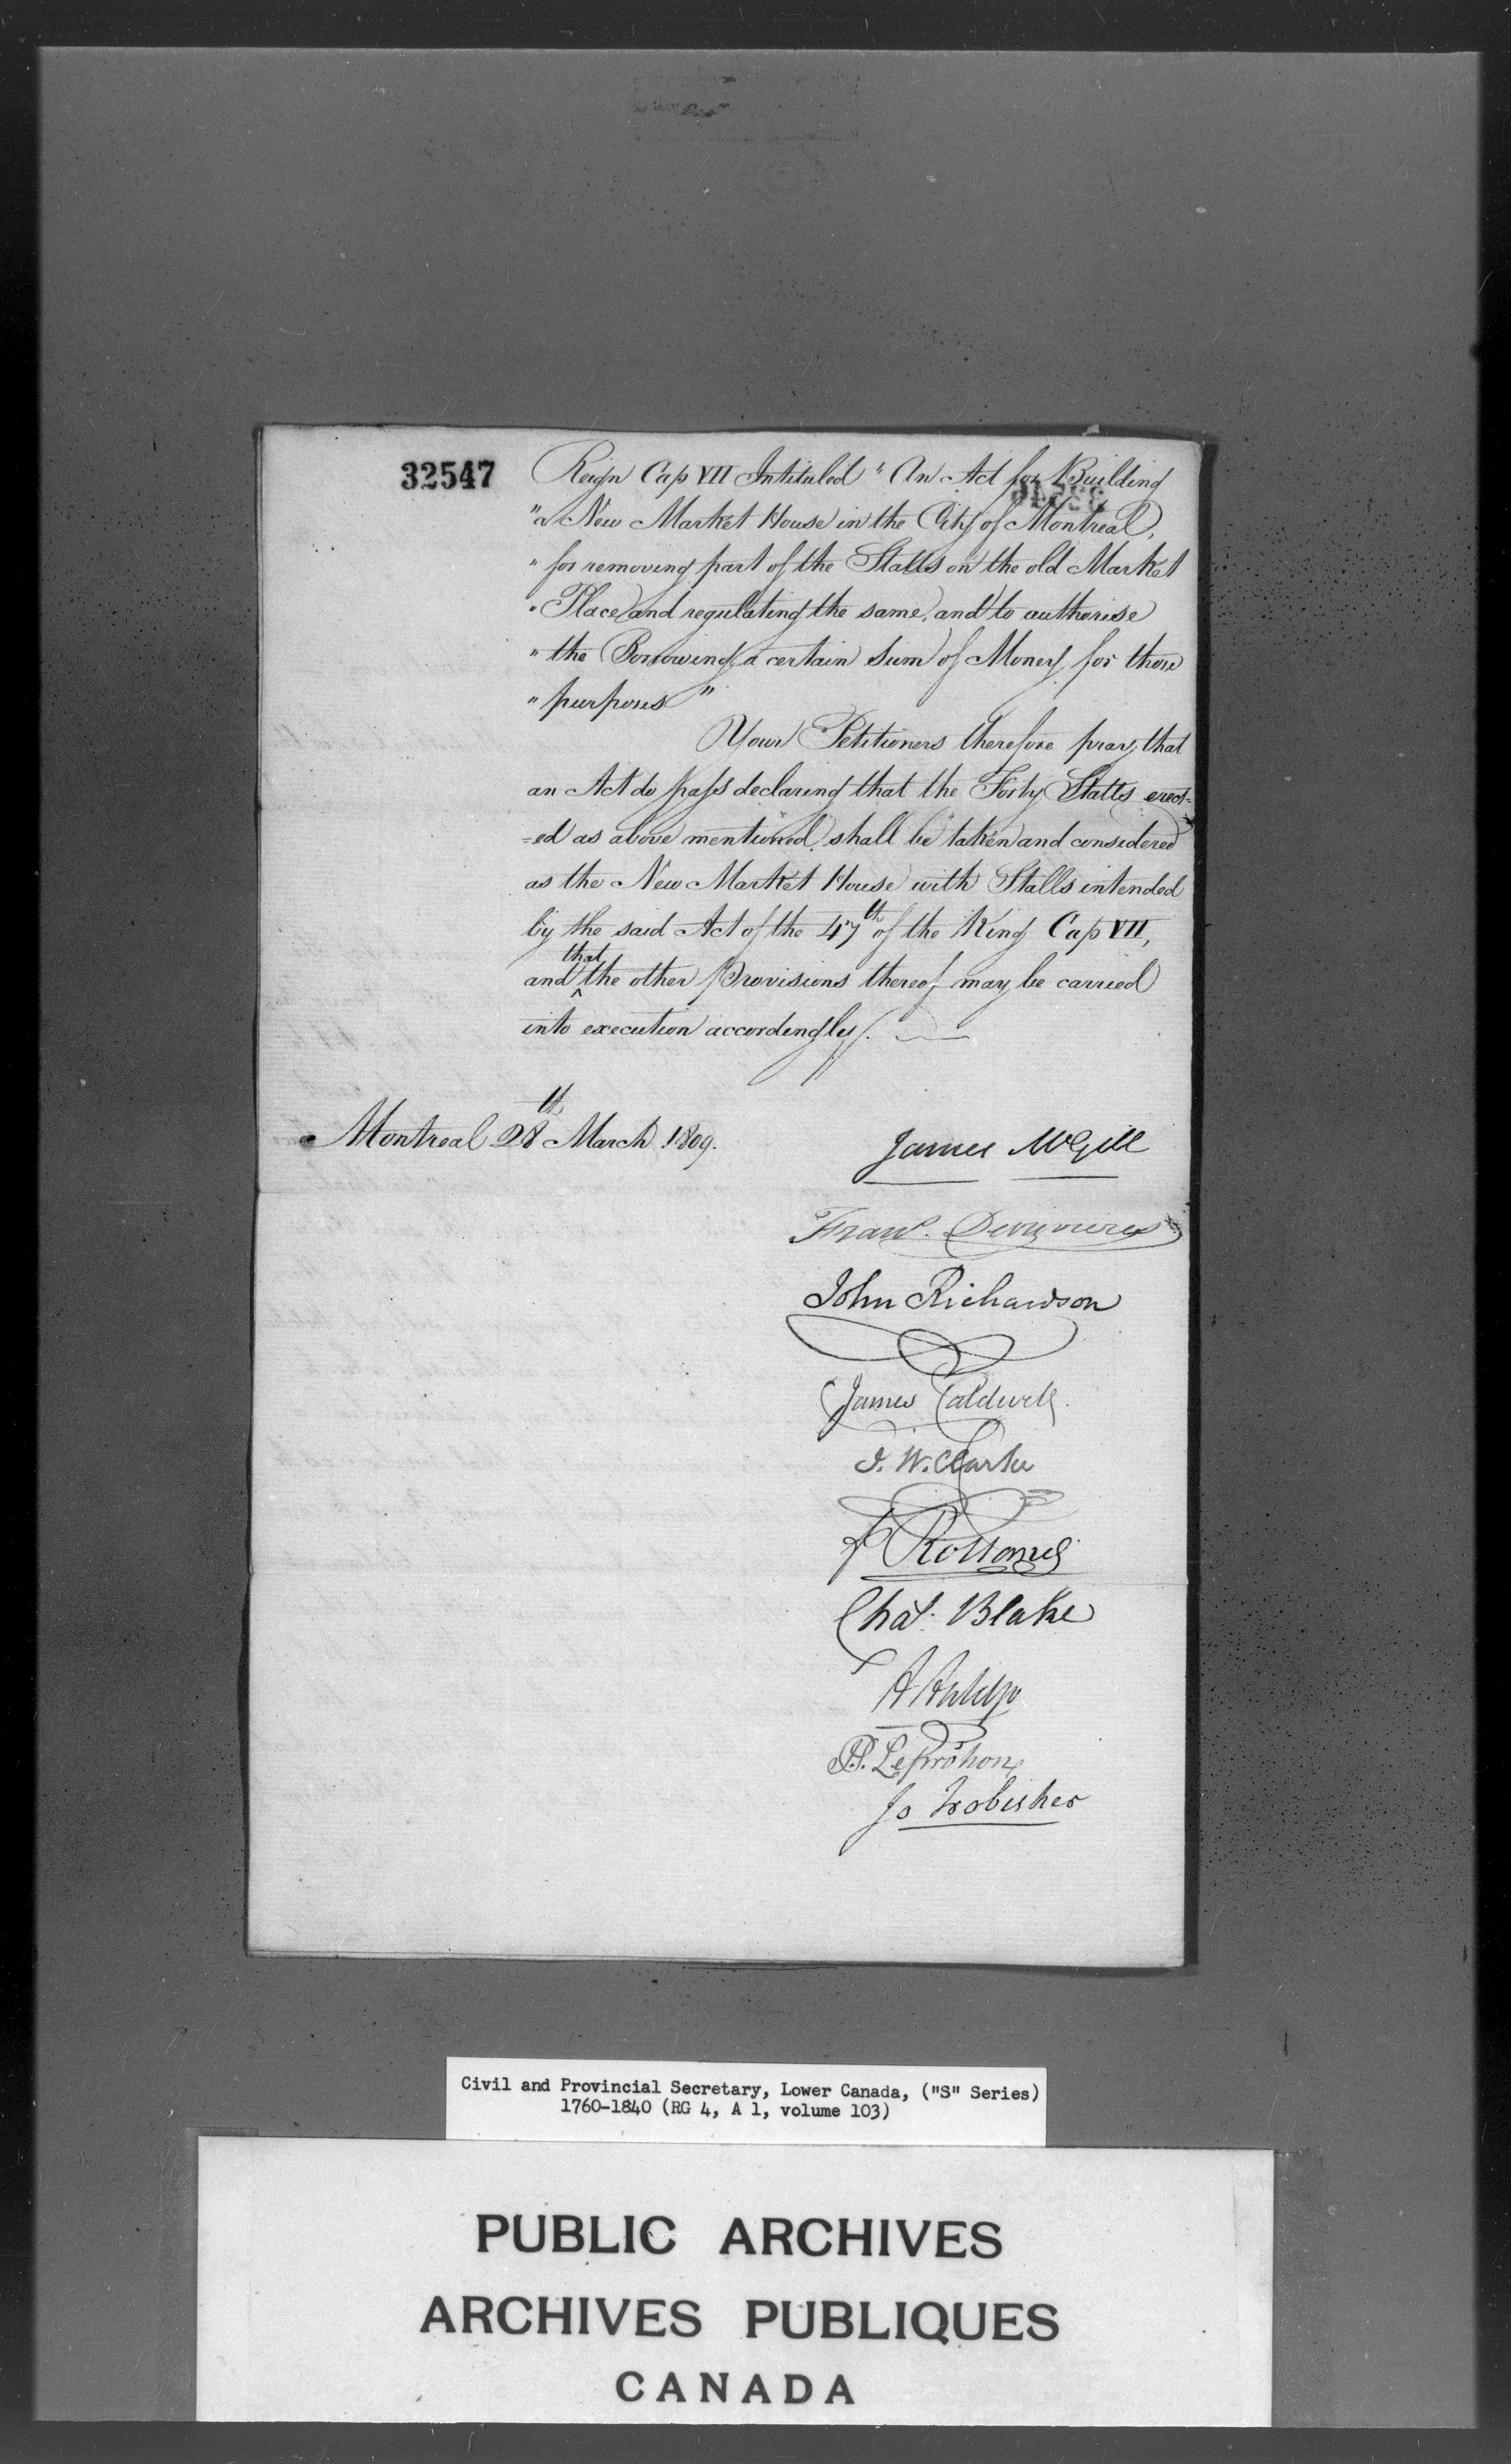 32547
Reign Cap VII Intituled " An Act for Building
" a New Market House in the City of Montreal,
" for removing part of the Stalls on the old Market
" Place and regulating the same, and to authorise
" the Borrowing a certain Sum of Money for those
" purposes "
Your Petitioners therefore pray that
an Act do pass declaring that the Forty Stalls erect-
=ed as above mentioned, shall be taken and considered
as the New Market House with Stalls intended
by the said Act of the 47th of the King Cap VII,
and that the other Provisions thereof may be carried
into execution accordingly.
Montreal 28th March 1809.
James McGill
Frans. Desrivieres
John Richardson
James Caldwell
I. W. Clarke
Chas. Blake
Leprohon
Jos Frobisher
Civil and Provincial Secretary, Lower Canada, ("S" Series)
1760-1840 (RG 4, A 1, volume 103)
PUBLIC ARCHIVES
ARCHIVES PUBLIQUES
CANADA